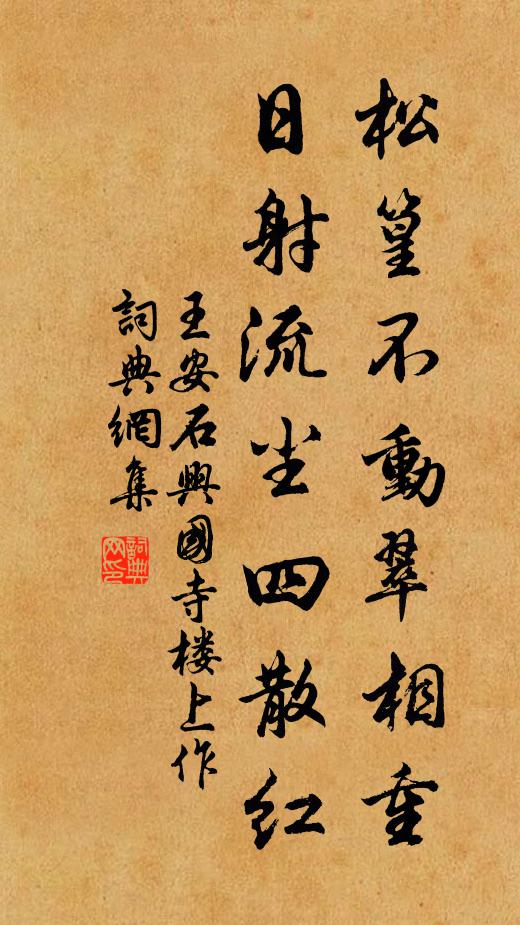 松篁不動翠相重
日射流尘四散紅
王安石興國寺楼上作
詞典網集
詞典网印